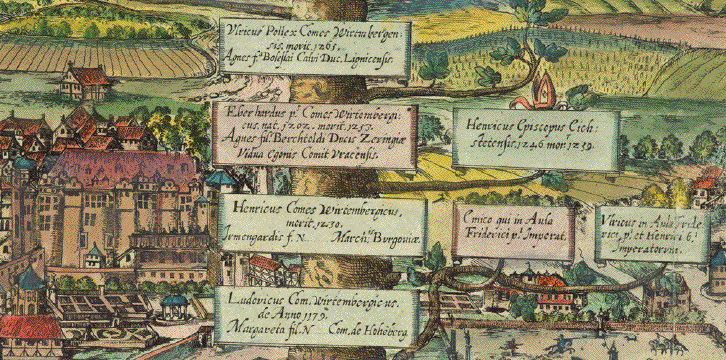 Vlricus Pollex Comes Wirtembergen:
sis, morit. 1265.
Agnes f. Boleslai Calvi Duc. Lignicensis.
Eberhardus p. Comes Wirtembergi:
cus, nat. 1202. morit. 1253.
Agnes fil. Berchtoldi Ducis Zeringiæ
Vidua Egonis Comit Vracensis.
Henricus Episcopus Eich:
stettensis. 1246. mor. 1259.
Henricus Comes Wirtembergicus,
morit. 1230.
Irmengardis f. N. Marci: Burgoviæ.
Emico qui in Aula
Friderici p. Imperat.
Vlricus in Aula Fride
rici p. et Henrici 6.
Imperatorum.
Ludovicus Com. Wirtembergicus.
de Anno 1179.
Margareta fil. N Com. de Hohoberg